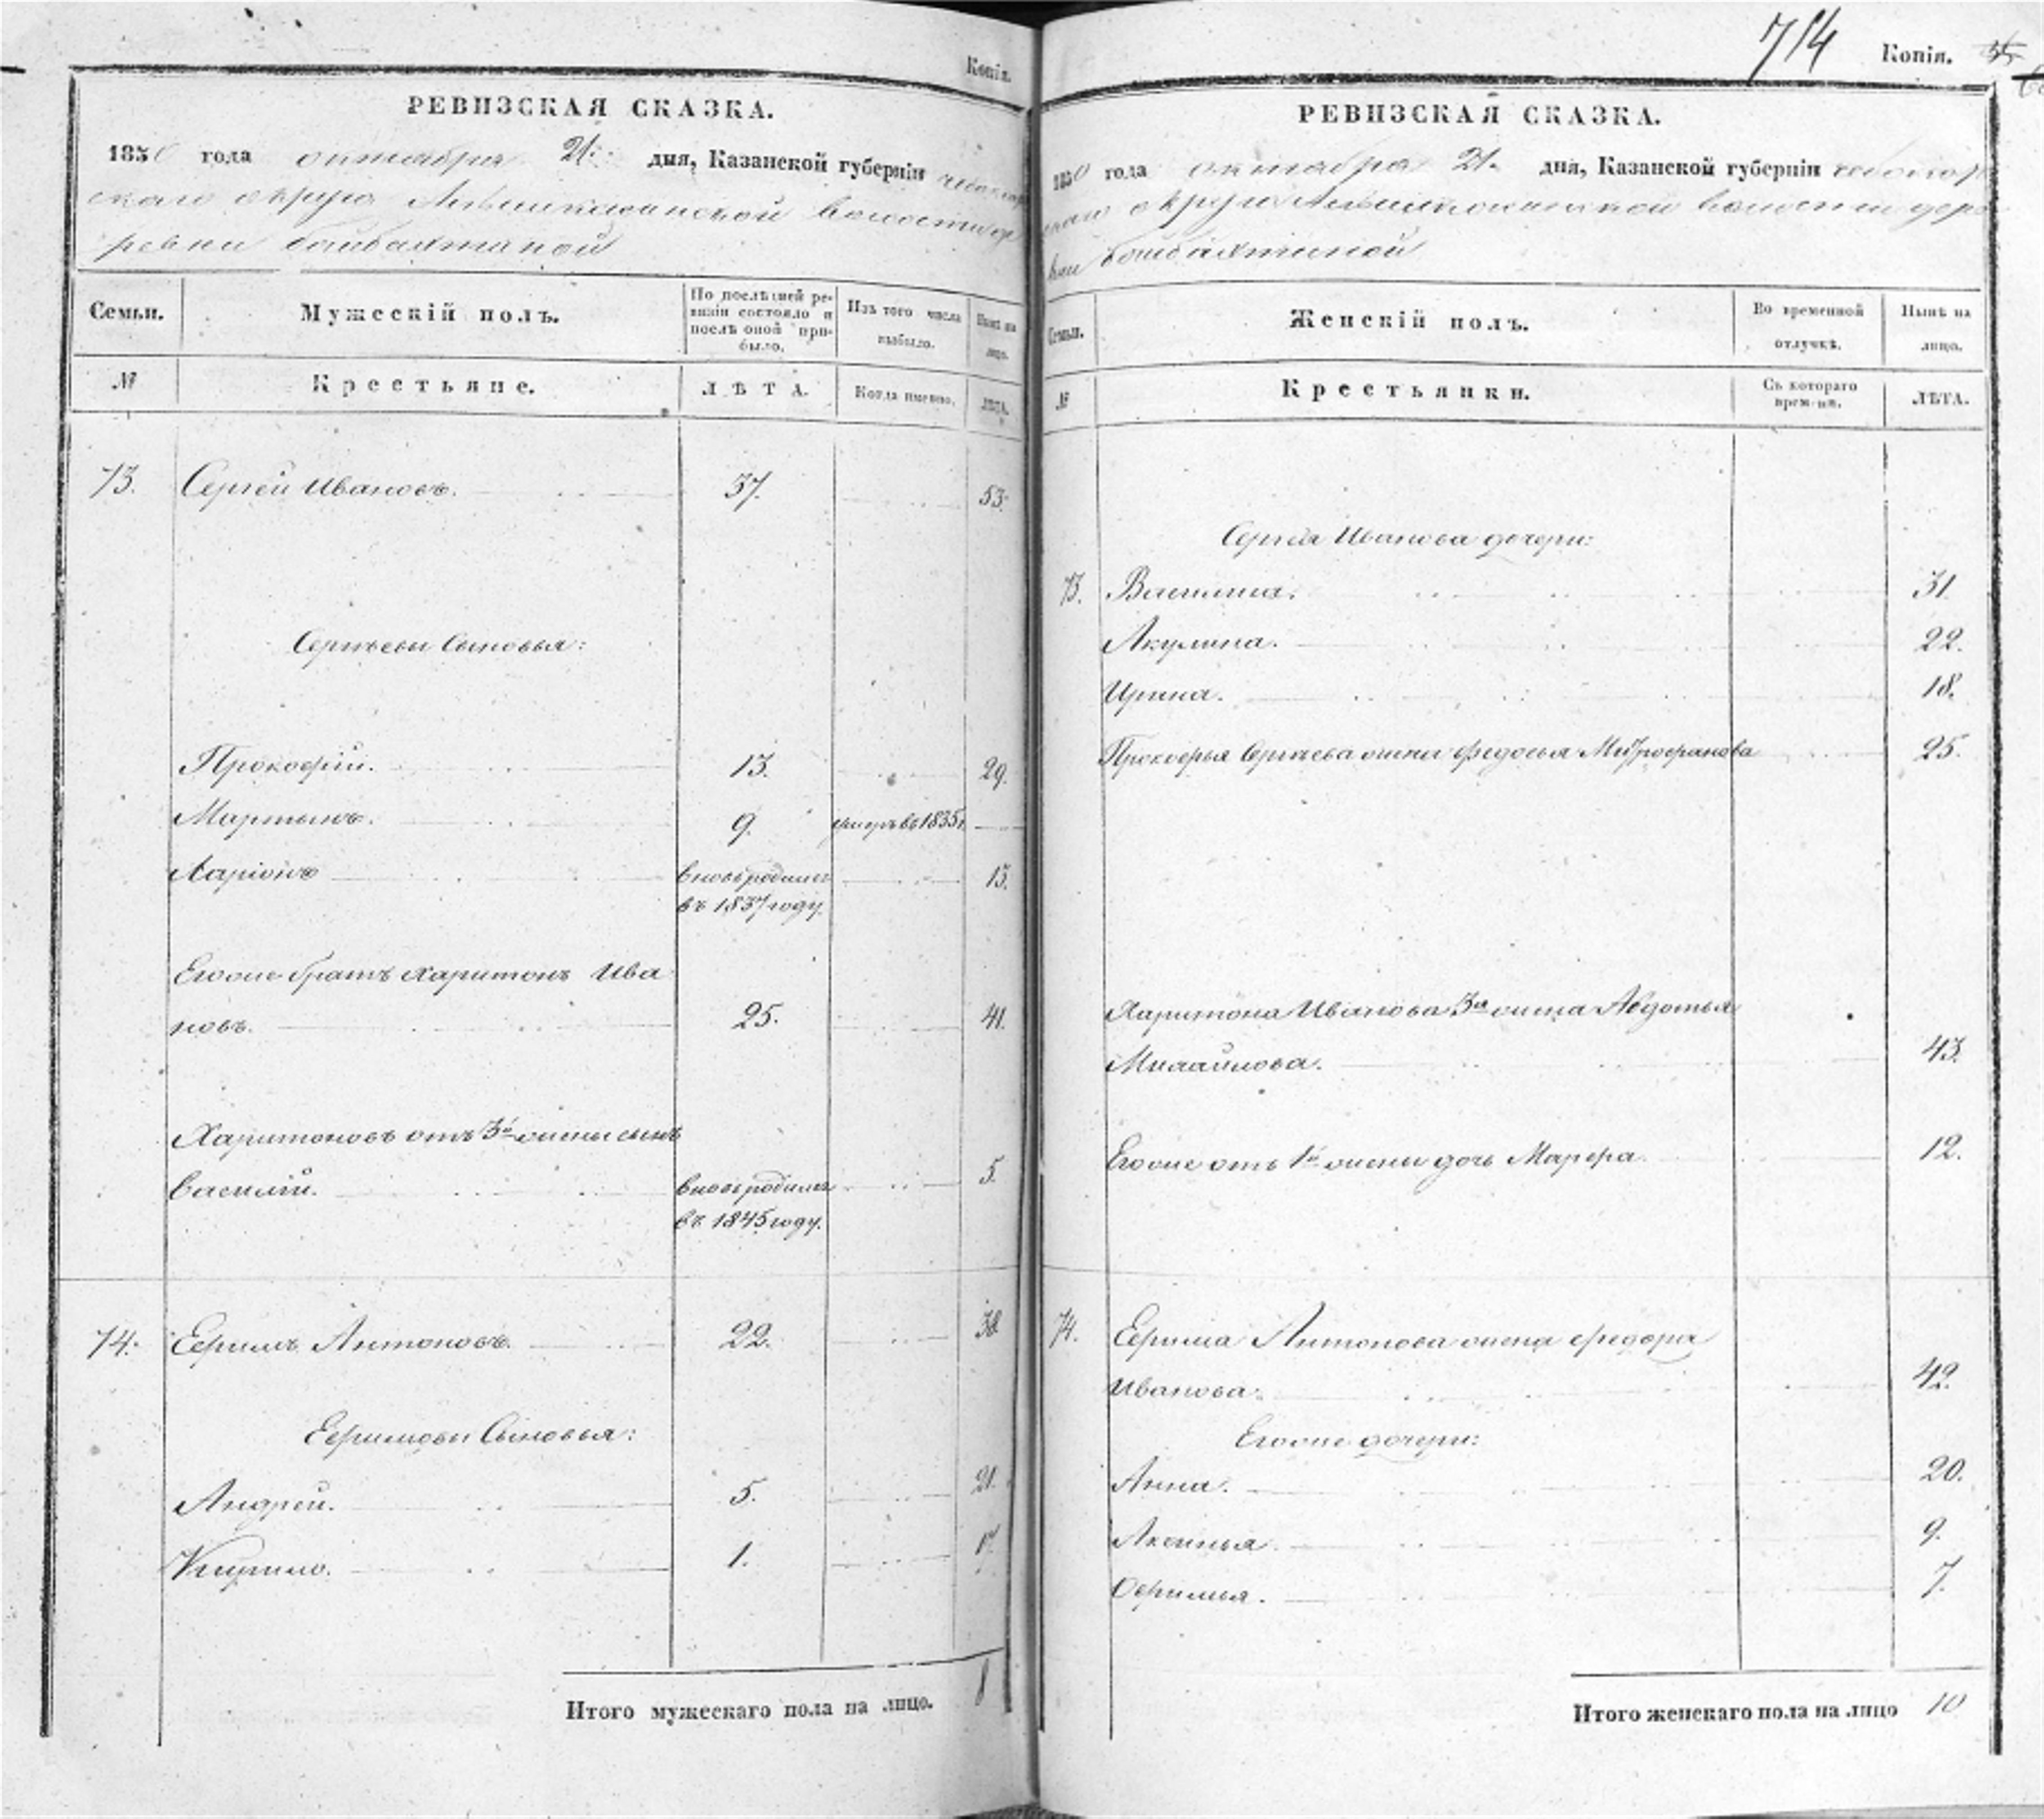 Копія.
РЕВИЗСКАЯ СКАЗКА.
1850 года октября 21. дня, Казанской губерніи чебоксар
скаго округа волости де
ревни байбахтиной
Семьи.
Мужескій полъ.
По послѣдней ре-
визіи состояло и
послѣ оной при-
было.
Изъ того числа
выбыло.
Нынѣ на
лицо.
№
Крестьяне.
ЛѢТА.
Когда именно.
ЛѢТА.
73. Сергей Ивановъ. 37. 53.
Сергѣевы Сыновья:
Прокофій. 13. 29.
Мартынъ. 9. умеръ въ 1835г.
Ларіонъ вновь родился 13.
въ 1837 году.
Егоже братъ Харитонъ Ива
новъ. 25. 41.
Харитоновъ отъ 3й жены сынъ
Василій. вновь родился 5.
въ 1845 году.
74. Ефимъ Антоновъ. 22. 38.
Ефимовы Сыновья:
Андрей. 5. 21.
Кирило. 1. 17.
Итого мужескаго пола на лицо. 8
714 Копія.
РЕВИЗСКАЯ СКАЗКА.
1850 года октября 21. дня, Казанской губерніи чебоксар
скаго округа волости дерев
ни байбахтиной
Семьи.
Женскій полъ.
Во временной
отлучкѣ.
Нынѣ на
лицо.
№
Крестьянки.
Съ котораго
времени.
ЛѢТА.
Сергѣя Иванова дочери:
73. Василиса. 31.
Акулина. 22.
Ирина. 18.
Прокофья Сергѣева жена Федосья Митрофанова 25.
Харитона Иванова 3я жена Авдотья
Михайлова. 43.
Егоже отъ 1й жены дочь Марфа. 12.
74. Ефима Антонова жена Федора
Иванова. 42.
Егоже дочери:
Анна. 20.
Аксинья. 9.
Офимья. 7.
Итого женскаго пола на лицо 10